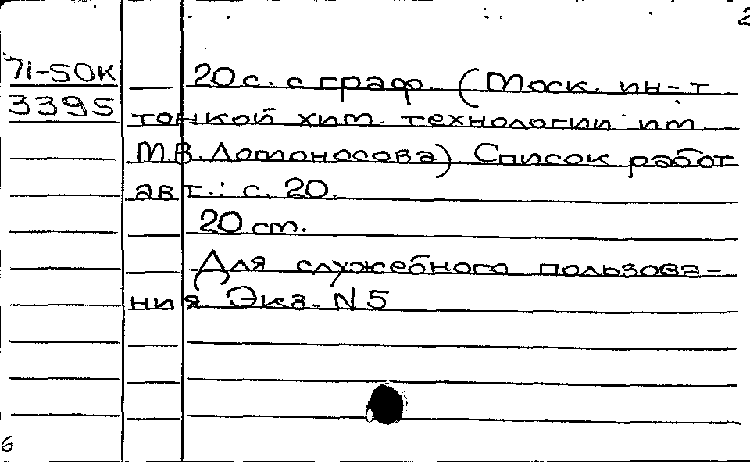 2
71-50К
3395
20 с. с граф. (Моск. ин-т
тонкой хим. технологии им.
М.В.Ломоносова) Список работ
авт.: с. 20.
20 см.
Для служебного пользова-
ния Экз. N 5
6